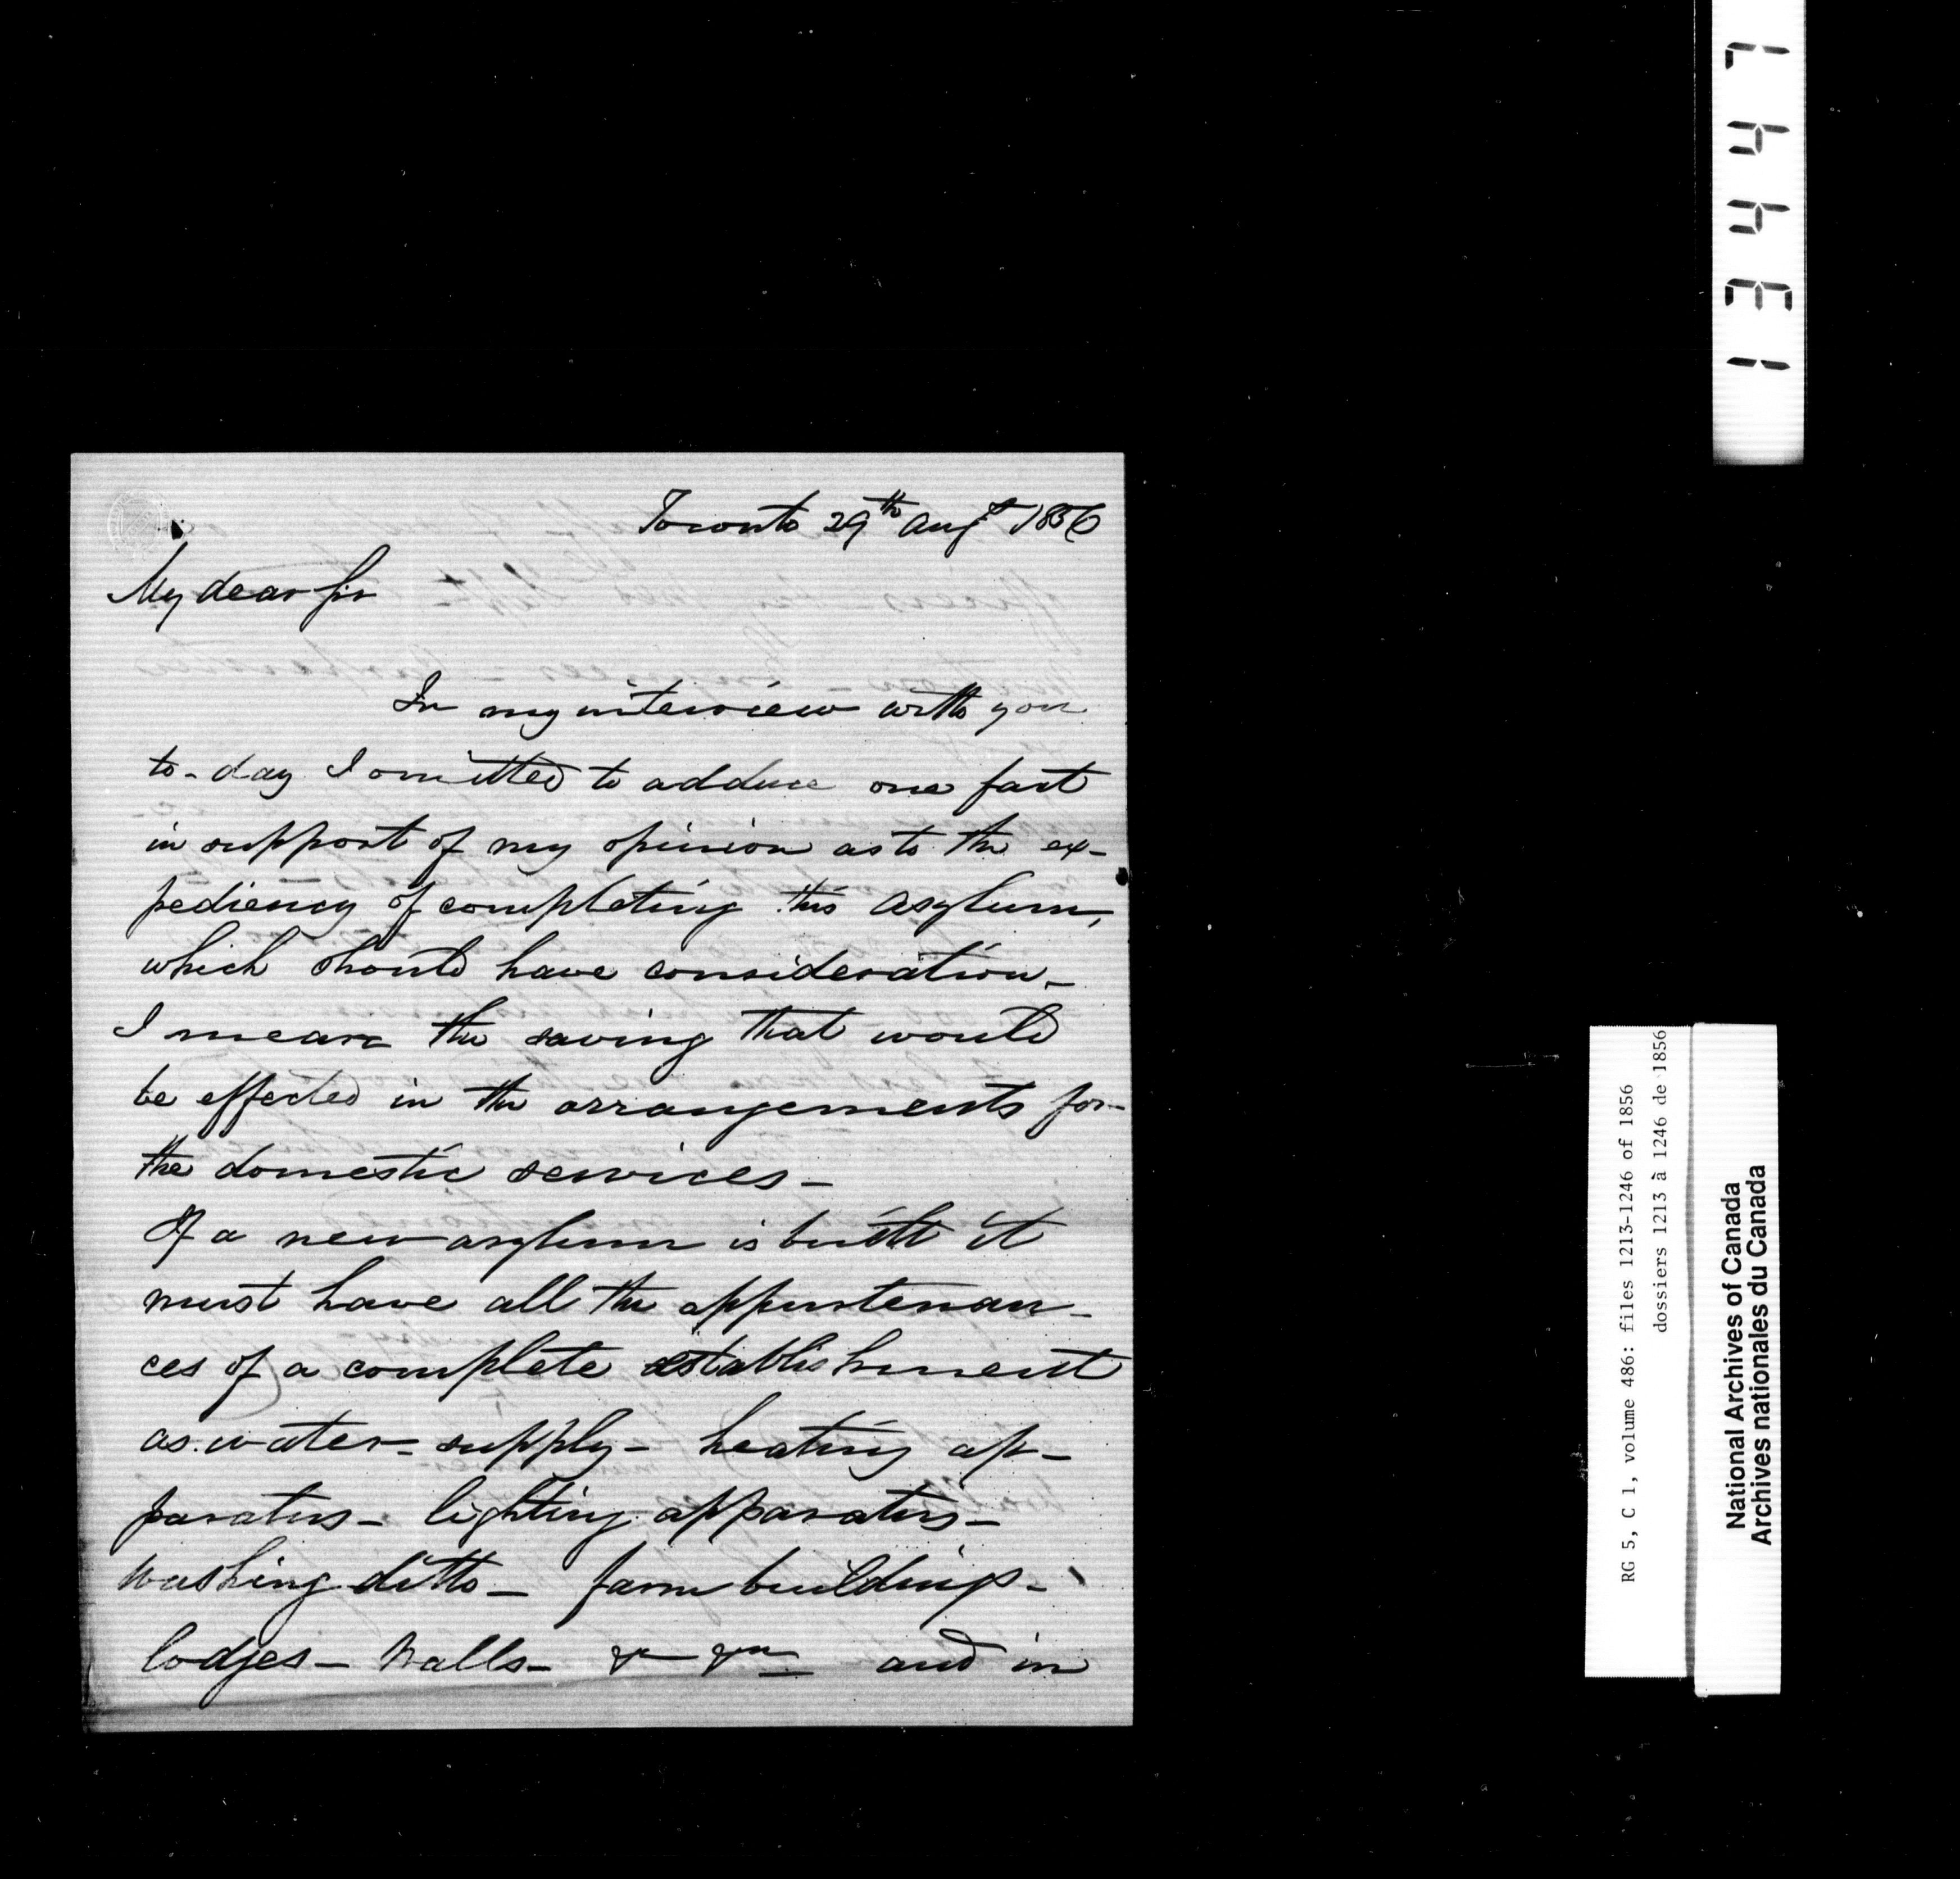 Toronto 29th Augst 1856
My dear Sir
In my interview with you
to-day I omitted to adduce one fact
in support of my opinion as to the ex-
pediency of completing this Asylum,
which should have consideration_
I mean the saving that would
be effected in the arrangements for
the domestic services_
If a new asylum is built it
must have all the appurtenan-
ces of a complete establishment
as water-supply_ heating ap-
paratus_ lighting apparatus_
washing ditto_ farm buildings_
lodges_ walls_ &c &c_ and in
13447
RG 5, C 1, volume 486: files 1213-1246 of 1856
dossiers 1213 à 1246 de 1856
National Archives of Canada
Archives nationales du Canada